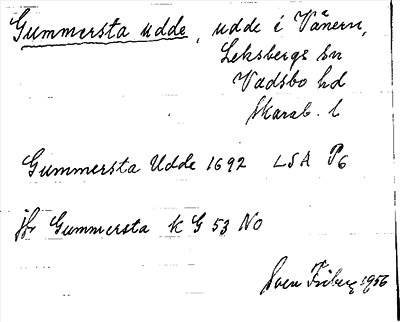 Gummersta udde, udde i Vänern,
Leksbergs sn
Vadsbo hd
Skarab. l
Gummersta Udde 1692 LSA P6
jfr Gummersta k G 53 NO
Sven Friberg 1956